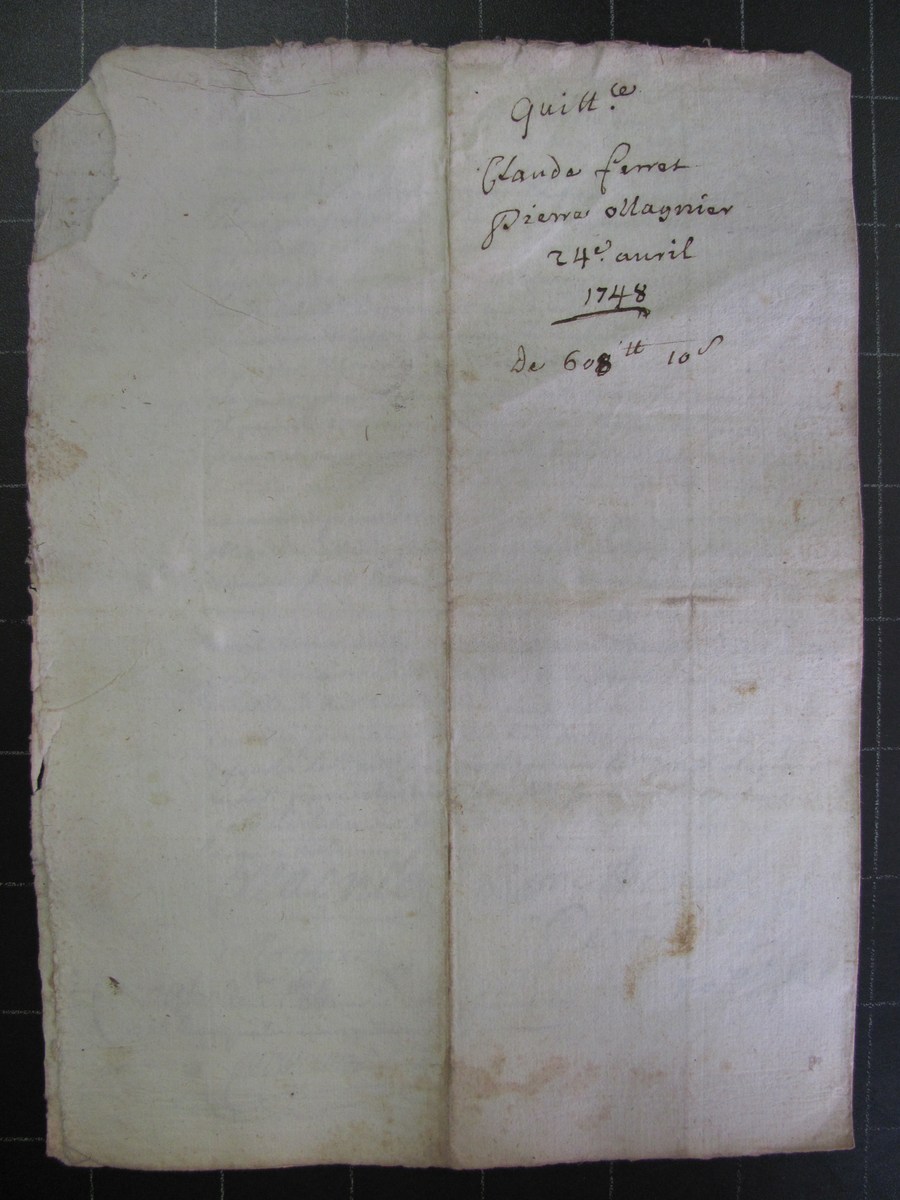 Quitt.ce
Claude ferret
Pierre ollagnier
24e. avril
1748
De 608tt 10s